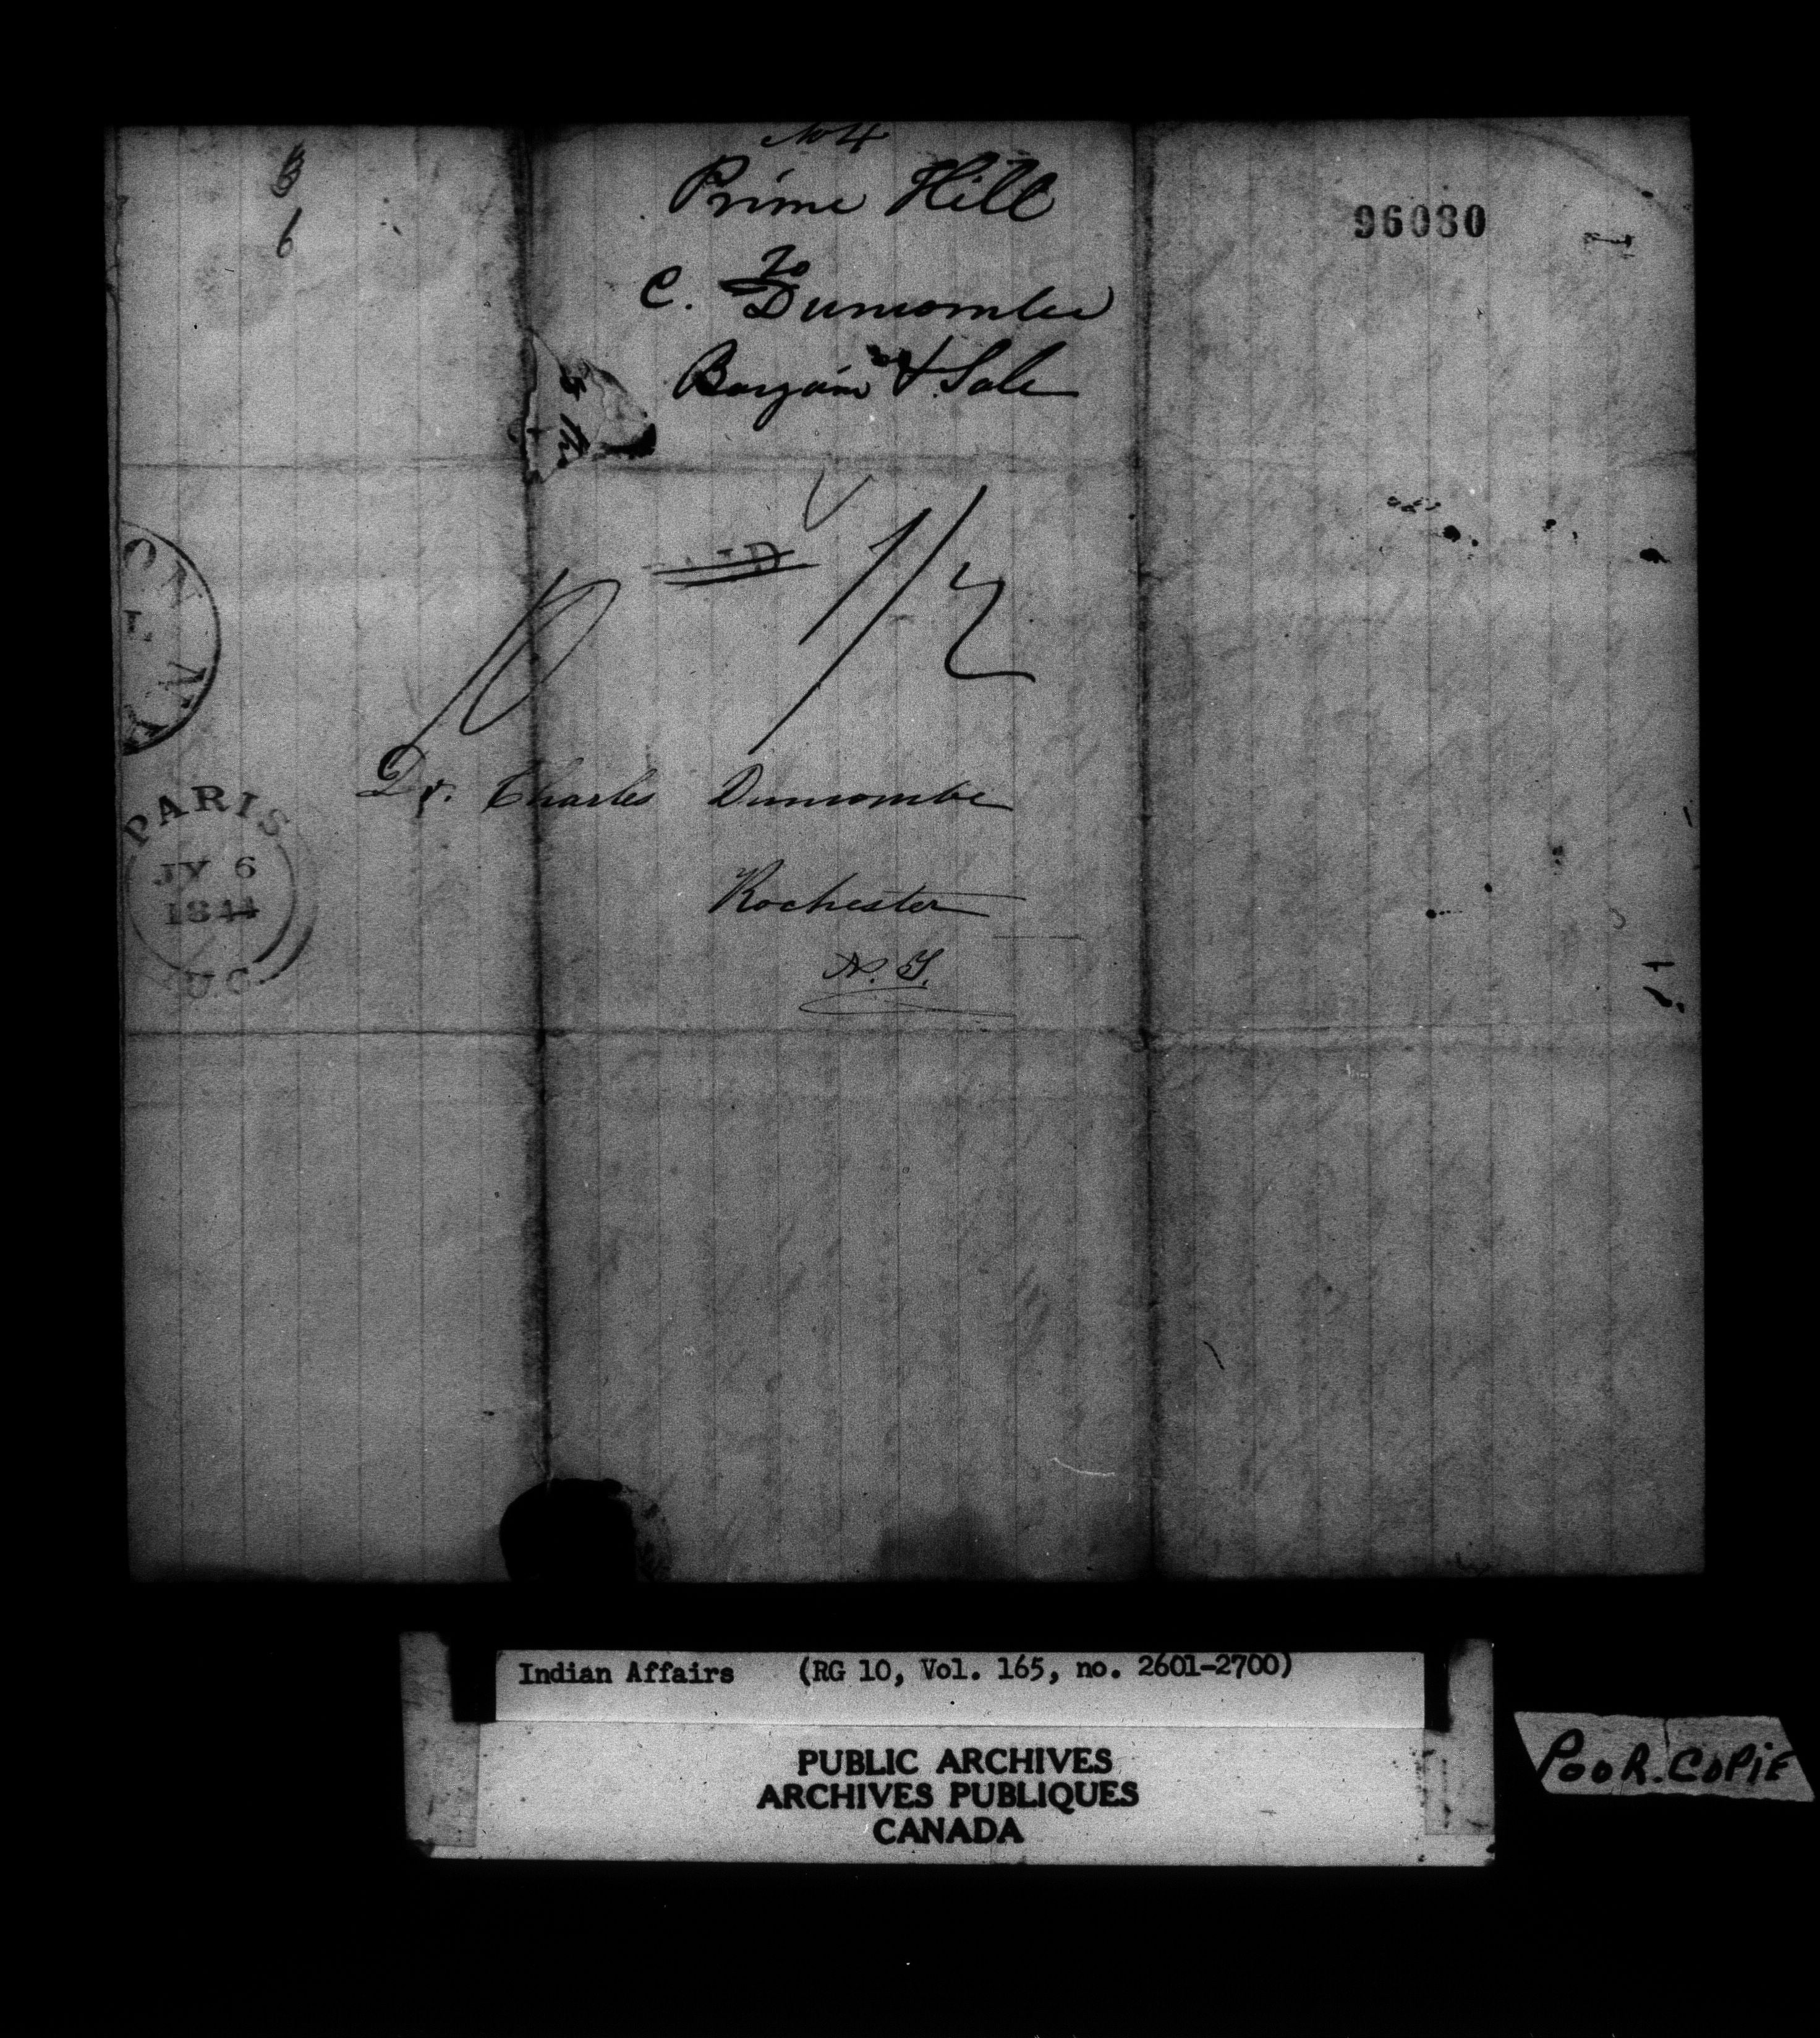 No 4
Prime Hill
to
C. Duncombe
Bargain & Sale
96080
1/2
10
Dr. Charles Duncombe
Rochester
N. Y.
PARIS
JY 6
1844
U.C.
Indian Affairs (RG 10, Vol. 165, no. 2601-2700)
PUBLIC ARCHIVES
ARCHIVES PUBLIQUES
CANADA
POOR.COPIE